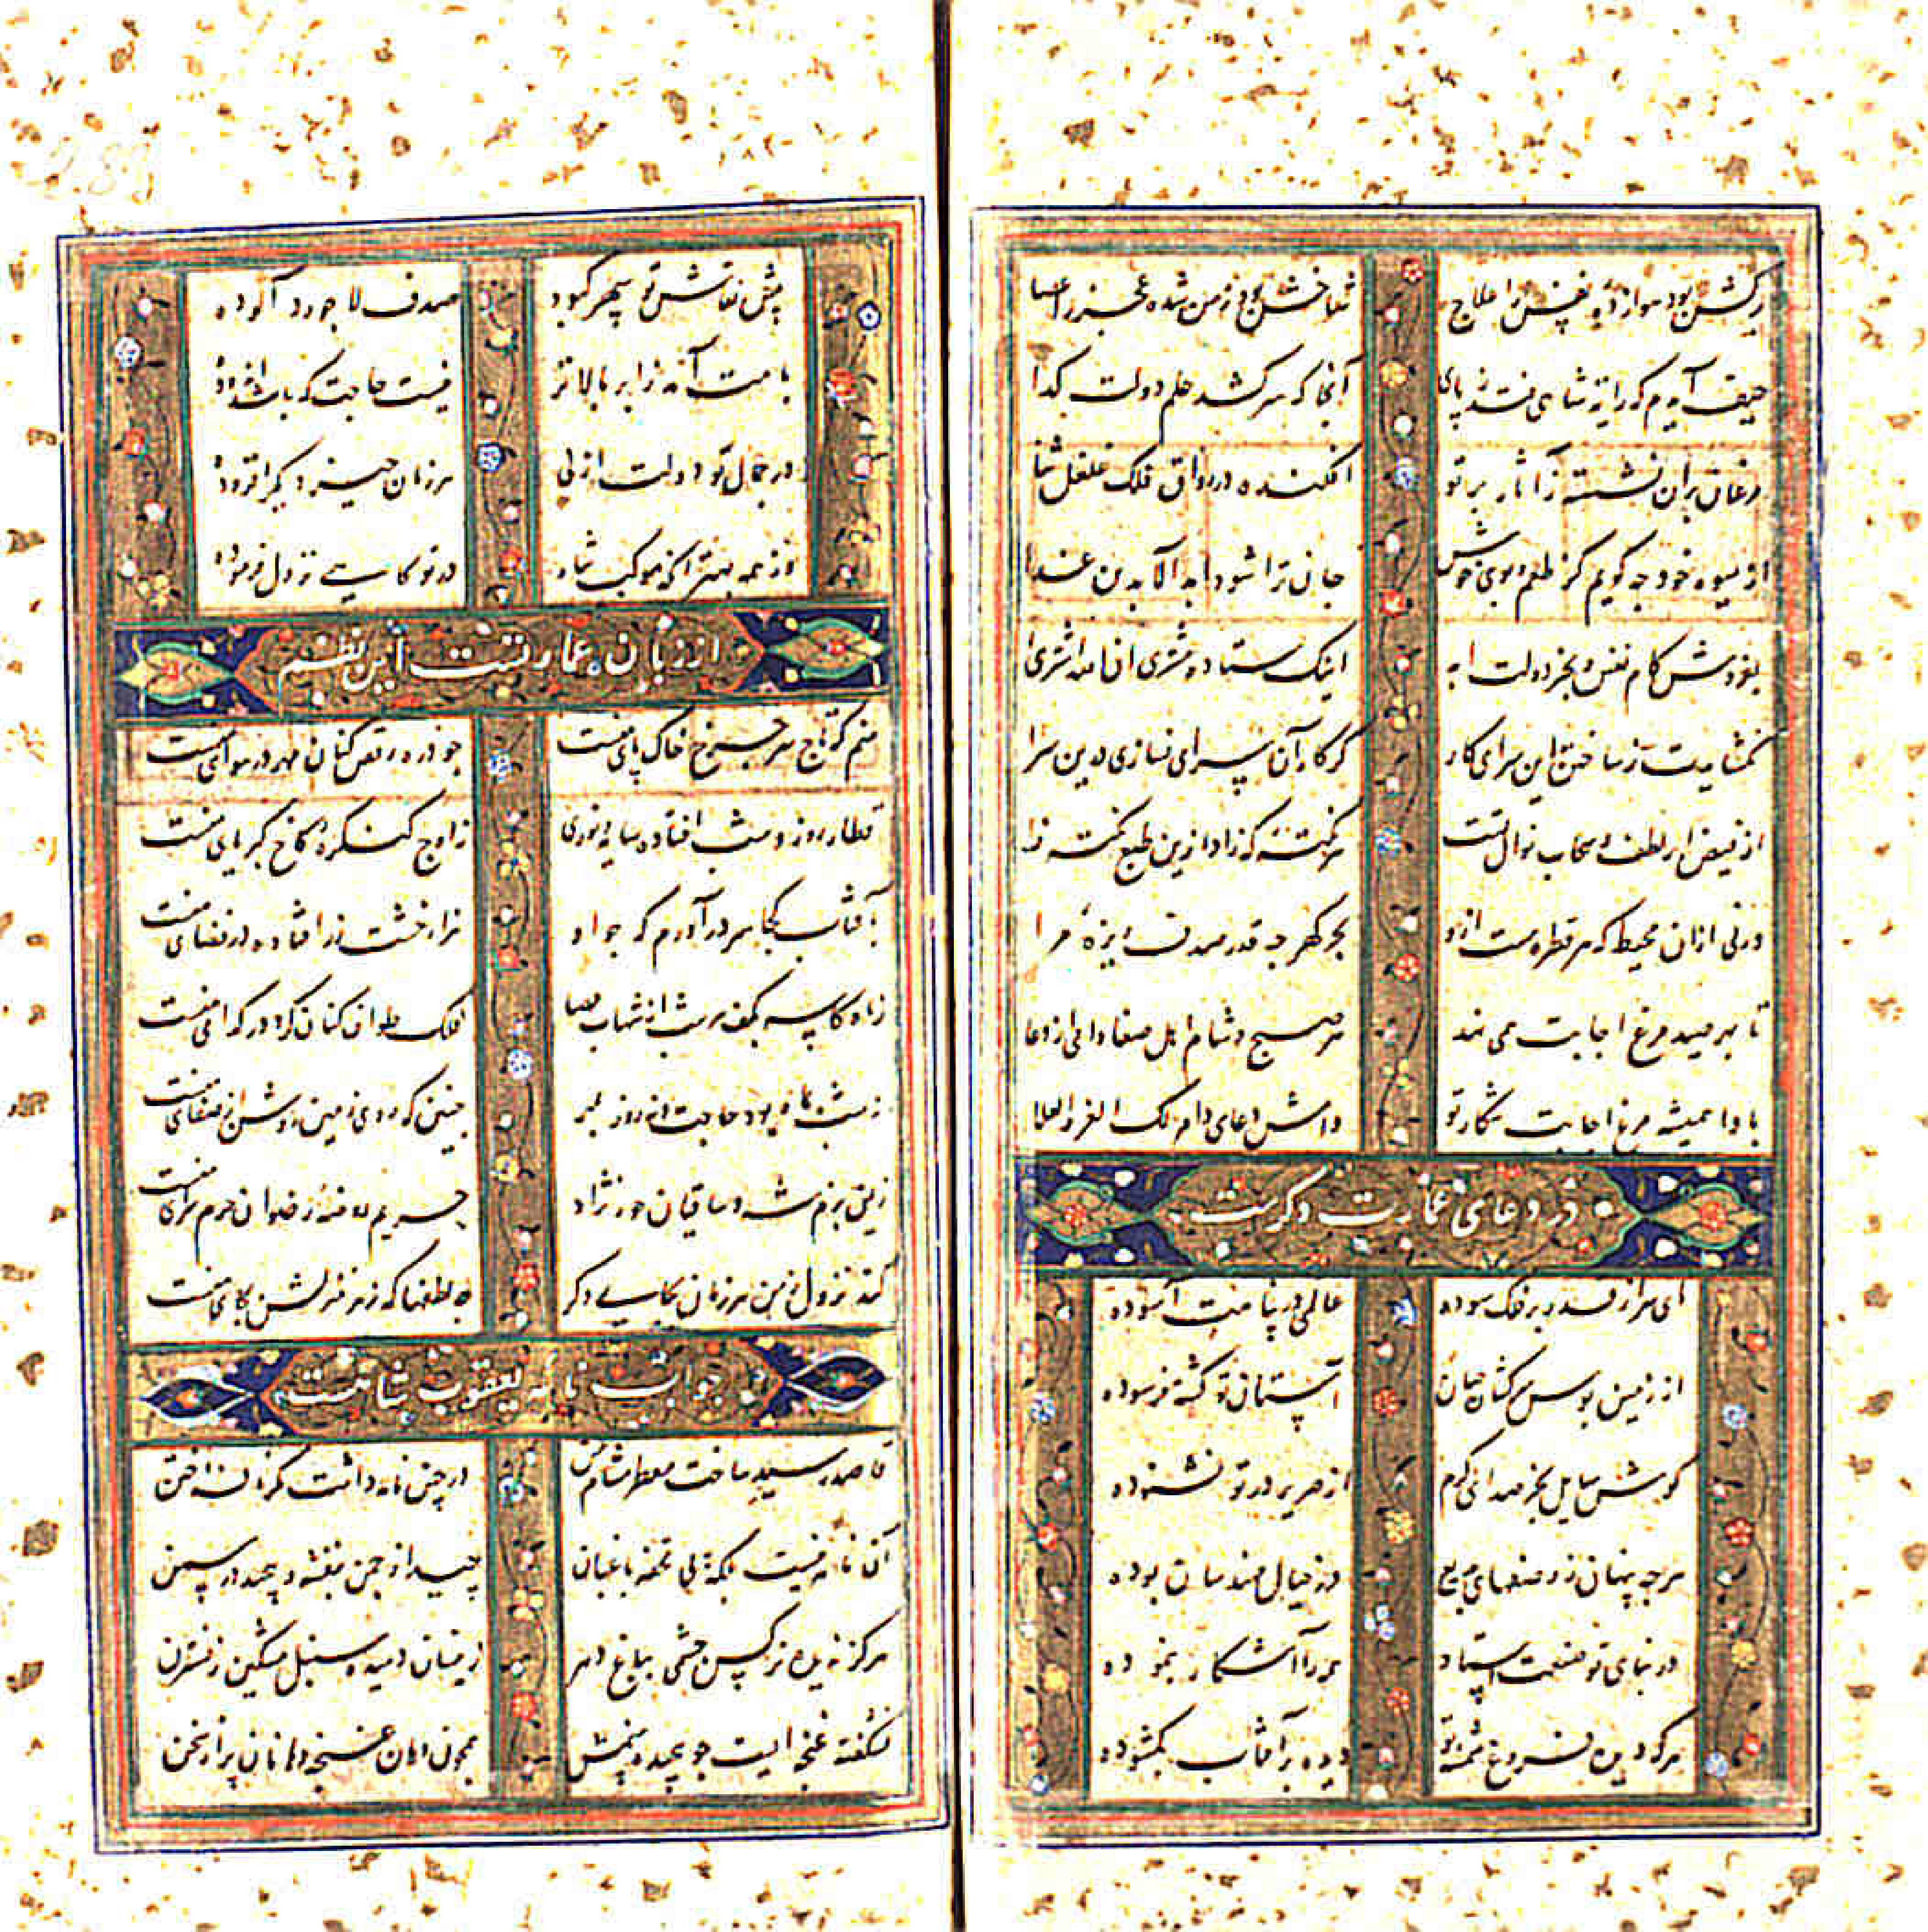 برکش بود هوا ز دیو نفس را علاج شاخش زمن شده عجز را عصا
حیف آیدم که رایت شاهی فتد ز پای آنجا که سر کشد علم دولت گدا
مرغان بران نشسته ز آثار بر تو افکنده در رواق فلک غلغل ثنا
از میوه خود چه گویم کز طعم و بوی خوش جان ترا شود ابد الآبدین غذا
بفروش کام نفس و بخر دولت ابد اینک ستاده مشتری ان الله اشتری
نگشایدت ز ساختن این سرای کار گر کار آن سرای نسازی درین سرا
از فیض ابر لطف و سحاب نوال تست هر نکته که زاد ازین طبع نکته زا
ورنی ازان محیط که هر قطره است ازو بحر گهر چه قدر صدف ریزهٔ مرا
تا بهر صید مرغ اجابت می نهند هر صبح و شام اهل صفا دامی از دعا
بادا همیشه مرغ اجابت شکار تو دامش دعای دام لک العز و العلا
در دعای عمارت دگرست
ای سر از قدر بر فلک سوده عالمی در پناهت آسوده
از زمین بوس سرکشان جهان آستان تو گشته فرسوده
گوش سایل بجز صدای کرم از صریر در تو نشنوده
هر چه پنهان ز وضعهای بدیع در خیال مهندسان بوده
در بنای تو صنعت استاد همه را آشکار بنموده
هر که دیده فروغ شمسه تو دیده بر آفتاب نگشوده
پیش نقاش تو سپهر کبود صدف لاجورد آلوده
بامت آمد ز ابر بالاتر نیست حاجت که باشد اندوده
در جمال تو دولت ازلی هر زمان چیز دیگر افزوده
وز همه بهتر آنکه موکب شاه در تو گاهی نزول فرموده
از زبان عمارتست این نظم
منم که تاج سر چرخ خاک پای منست چو ذره رقص کنان مهر در هوای منست
قطار روز و شب افتاده سایه و نوری ز اوج کنگره کاخ کبریای منست
بآفتاب کجا سر درآورم که چو او هزار خشت زر افتاده در فضای منست
فلک طواف کنان گرد در گدای منست
ز شب نماند و بود حاجت از روز چنین که روی زمین روشن از صفای منست
ازین بزم شه و ساقیان حور نژاد حریم روضهٔ رضوان حرم سرای منست
کند نزول بمن هر زمان بجای دگر چه لطفها که ز هر منزلش بجای منست
جواب نامه یعقوب شاهست
قاصد رسید و ساخت معطر مشام من در چین نامه داشت مگر نافه ختن
آن نامه نیست بلکه پی تحفه باغبان چید از چمن بنفشه و پیچید در سمن
هرگز ندیده نرگس چشمی بباغ دهر زینسان دمیده سنبل مشکین ز نسترن
نشکفته غنچه ایست چو پیچیده بینمش همچون دهان غنچه دهانان پر از سخن